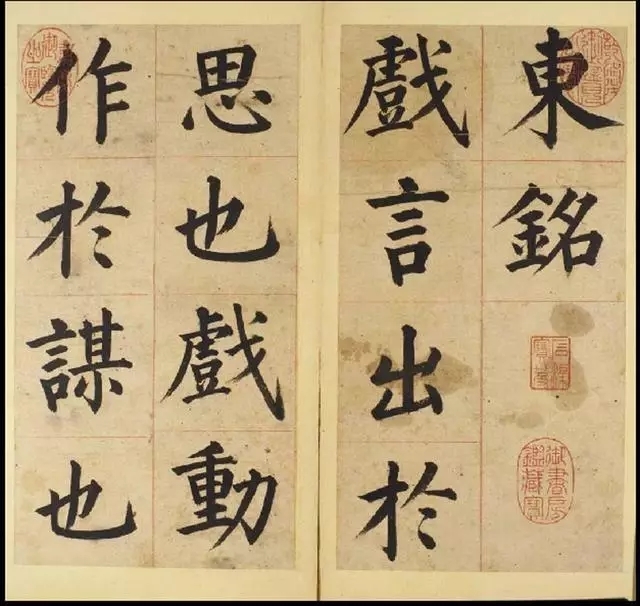 東銘
戲言出於
思也戲動
作於謀也
御書房鑑藏寶